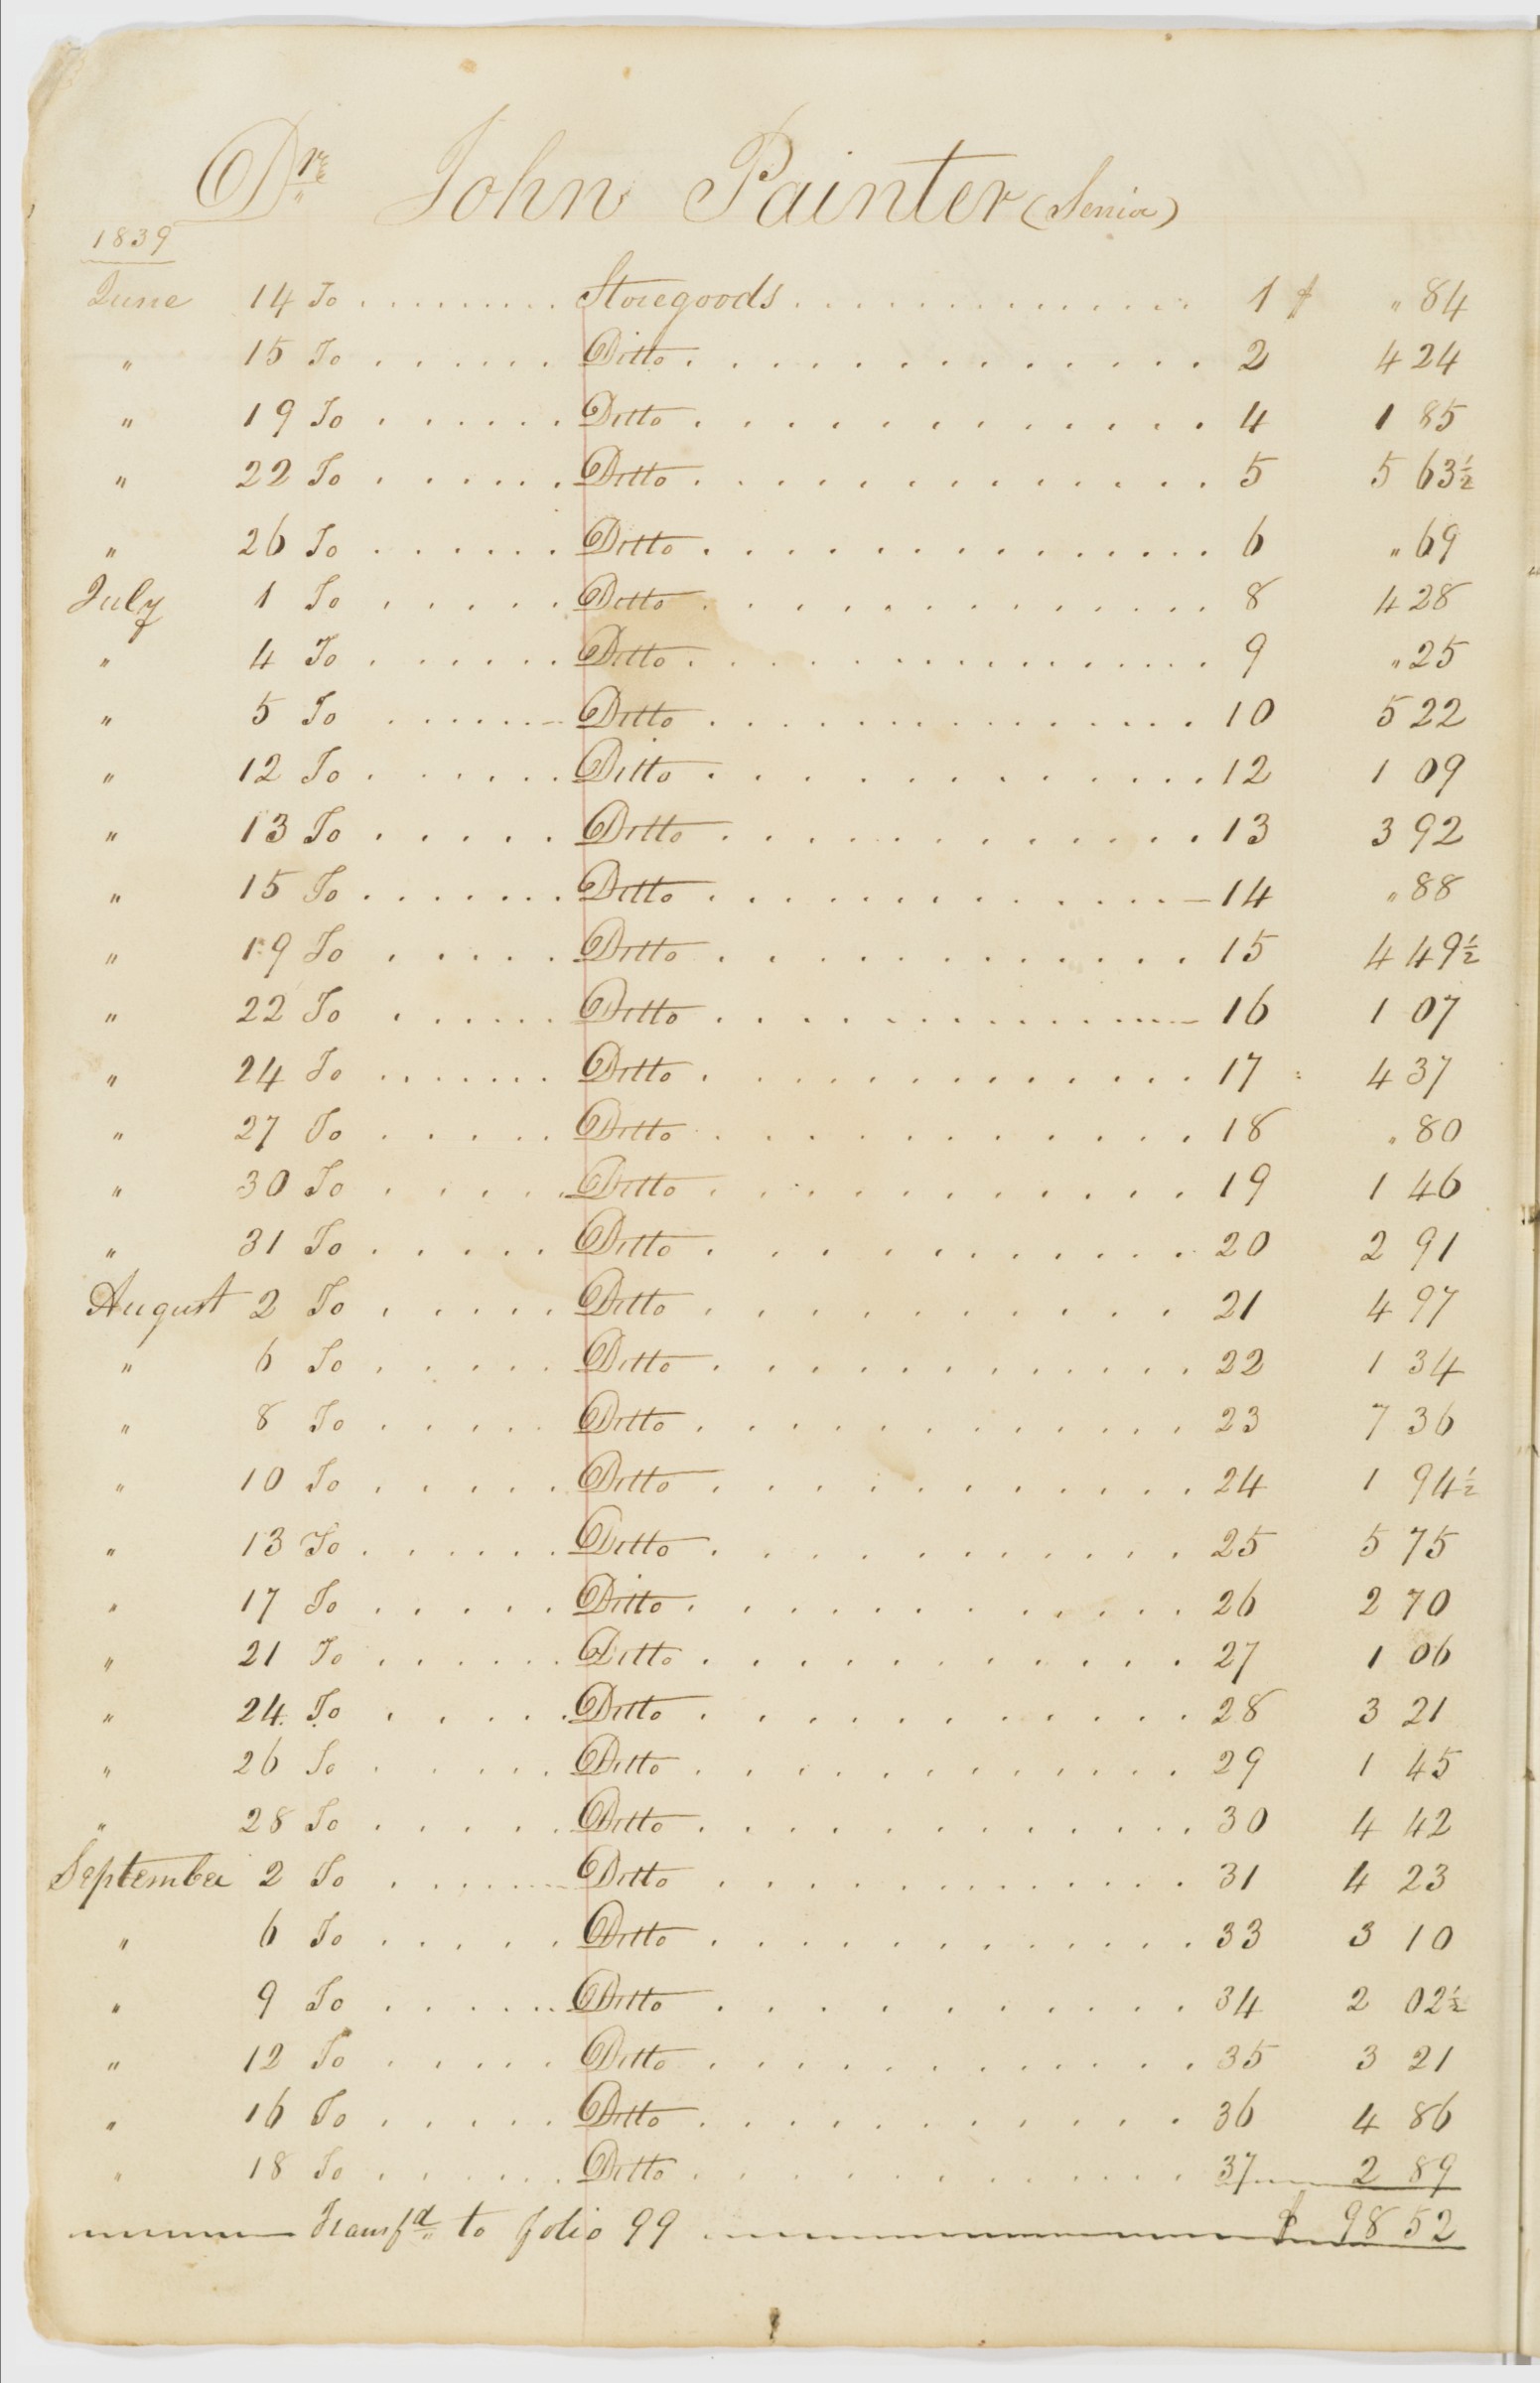 Dr John Painter (Senior)
1839
June 14 To . . . . . . . . . Storegoods . . . . . . . . . . . . . 1 $ " 84
" 15 To . . . . . . Ditto . . . . . . . . . . . . . 2 4 24
" 19 To . . . . . . Ditto . . . . . . . . . . . . . 4 1 85
" 22 To . . . . . . Ditto . . . . . . . . . . . . . 5 5 63½
" 26 To . . . . . . Ditto . . . . . . . . . . . . . 6 " 69
July 1 To . . . . . Ditto . . . . . . . . . . . . . 8 4 28
" 4 To . . . . . . Ditto . . . . . . . . . . . . . 9 " 25
" 5 To . . . . . . Ditto . . . . . . . . . . . . . 10 5 22
" 12 To . . . . . . Ditto . . . . . . . . . . . . 12 1 09
" 13 To . . . . . Ditto . . . . . . . . . . . . 13 3 92
" 15 To . . . . . . . Ditto . . . . . . . . . . . . 14 " 88
" 19 To . . . . . Ditto . . . . . . . . . . . . 15 4 49½
" 22 To . . . . . . Ditto . . . . . . . . . . . . 16 1 07
" 24 To . . . . . . . Ditto . . . . . . . . . . . . 17 4 37
" 27 To . . . . . Ditto . . . . . . . . . . . . 18 " 80
" 30 To . . . . . Ditto . . . . . . . . . . . . 19 1 46
" 31 To . . . . . Ditto . . . . . . . . . . . . 20 2 91
August 2 To . . . . . Ditto . . . . . . . . . . . 21 4 97
" 6 To . . . . . Ditto . . . . . . . . . . . . 22 1 34
" 8 To . . . . . Ditto . . . . . . . . . . . . 23 7 36
" 10 To . . . . . Ditto . . . . . . . . . . . . 24 1 94½
" 13 To . . . . . . Ditto . . . . . . . . . . . 25 5 75
" 17 To . . . . . Ditto . . . . . . . . . . . . 26 2 70
" 21 To . . . . . . Ditto . . . . . . . . . . . 27 1 06
" 24 To . . . . . Ditto . . . . . . . . . . . . 28 3 21
" 26 To . . . . . Ditto . . . . . . . . . . . . 29 1 45
" 28 To . . . . . Ditto . . . . . . . . . . . . 30 4 42
September 2 To . . . . . . Ditto . . . . . . . . . . . . 31 4 23
" 6 To . . . . . Ditto . . . . . . . . . . . . 33 3 10
" 9 To . . . . . . Ditto . . . . . . . . . . . 34 2 02½
" 12 To . . . . . Ditto . . . . . . . . . . . . 35 3 21
" 16 To . . . . . Ditto . . . . . . . . . . . 36 4 86
" 18 To . . . . . . Ditto . . . . . . . . . . . 37 2 89
Transfd to folio 99 $ 98 52